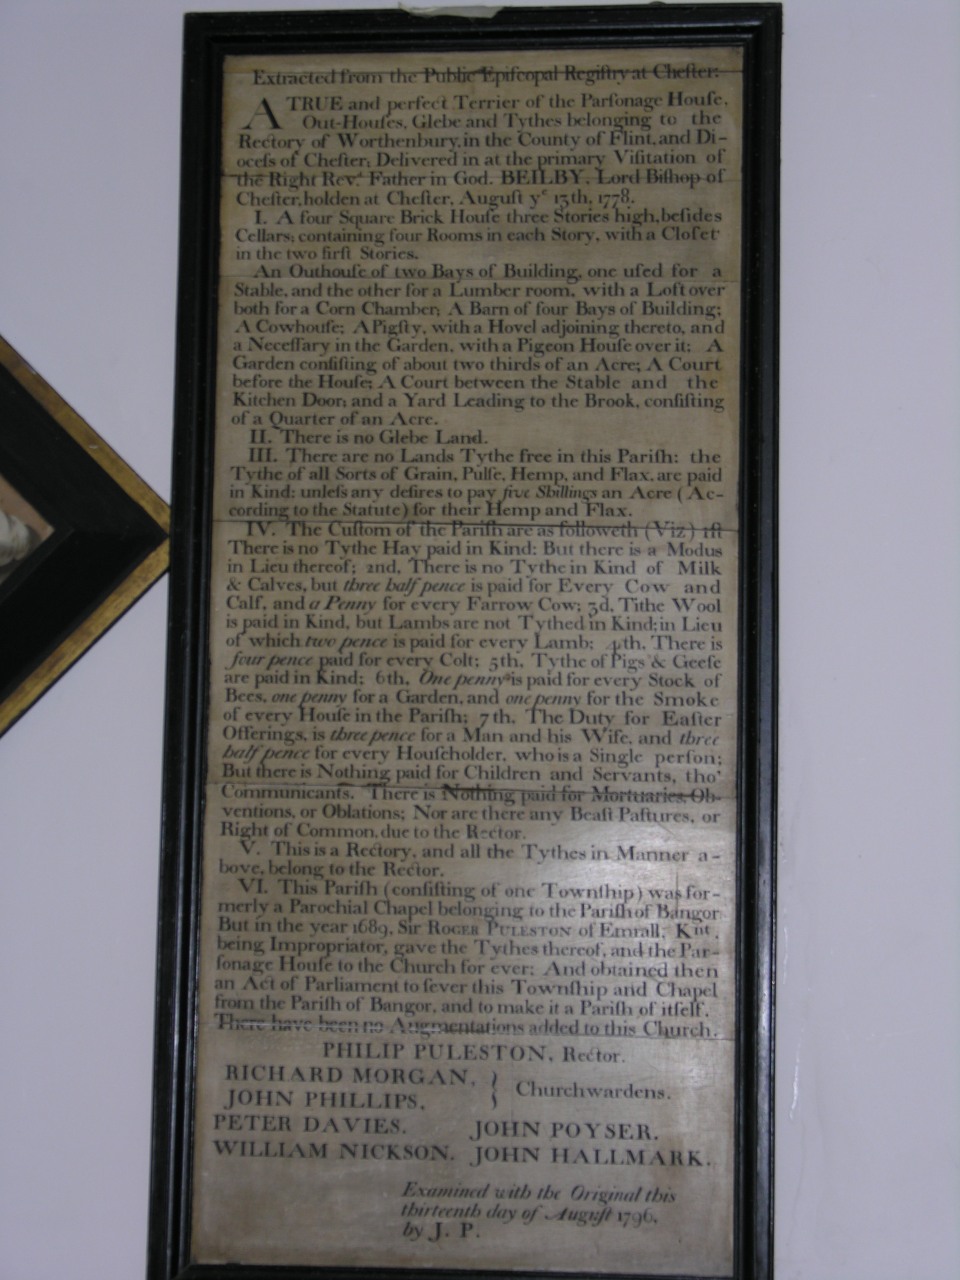 Extracted from the Public Epiſcopal Regiſtry at Cheſter:
A TRUE and perfect Terrier of the Parſonage Houſe,
Out-Houſes, Glebe and Tythes belonging to the
Rectory of Worthenbury, in the County of Flint, and Di-
oceſs of Cheſter; Delivered in at the primary Viſitation of
the Right Rev.d Father in God, BEILBY, Lord Biſhop of
Cheſter, holden at Cheſter, Auguſt ye 13th, 1778.
I. A four Square Brick Houſe three Stories high, beſides
Cellars; containing four Rooms in each Story, with a Cloſet
in the two firſt Stories.
An Outhouſe of two Bays of Building, one uſed for a
Stable, and the other for a Lumber room, with a Loft over
both for a Corn Chamber; A Barn of four Bays of Building;
A Cowhouſe; A Pigſty, with a Hovel adjoining thereto, and
a Neceſſary in the Garden, with a Pigeon Houſe over it; A
Garden conſiſting of about two thirds of an Acre; A Court
before the Houſe; A Court between the Stable and the
Kitchen Door; and a Yard Leading to the Brook, conſiſting
of a Quarter of an Acre.
II. There is no Glebe Land.
III. There are no Lands Tythe free in this Pariſh: the
Tythe of all Sorts of Grain, Pulſe, Hemp, and Flax, are paid
in Kind: unleſs any deſires to pay five Shillings an Acre (Ac-
cording to the Statute) for their Hemp and Flax.
IV. The Cuſtom of the Pariſh are as followeth (Viz) 1ſt
There is no Tythe Hay paid in Kind: But there is a Modus
in Lieu thereof; 2nd, There is no Tythe in Kind of Milk
& Calves, but three half pence is paid for Every Cow and
Calf, and a Penny for every Farrow Cow; 3d, Tithe Wool
is paid in Kind, but Lambs are not Tythed in Kind; in Lieu
of which two pence is paid for every Lamb; 4th, There is
four pence paid for every Colt; 5th, Tythe of Pigs & Geeſe
are paid in Kind; 6th, One penny is paid for every Stock of
Bees, one penny for a Garden, and one penny for the Smoke
of every Houſe in the Pariſh; 7th, The Duty for Eaſter
Offerings, is three pence for a Man and his Wife, and three
half pence for every Houſeholder, who is a Single perſon;
But there is Nothing paid for Children and Servants, tho'
Communicants. There is Nothing paid for Mortuaries, Ob-
ventions, or Oblations; Nor are there any Beaſt Paſtures, or
Right of Common, due to the Rector.
V. This is a Rectory, and all the Tythes in Manner a-
bove, belong to the Rector.
VI. This Pariſh (conſiſting of one Townſhip) was for-
merly a Parochial Chapel belonging to the Pariſh of Bangor
But in the year 1689, Sir ROGER PULESTON of Emrall, Knt,
being Impropriator, gave the Tythes thereof, and the Par-
ſonage Houſe to the Church for ever; And obtained then
an Act of Parliament to ſever this Townſhip and Chapel
from the Pariſh of Bangor, and to make it a Pariſh of itſelf.
There have been no Augmentations added to this Church.
PHILIP PULESTON, Rector.
RICHARD MORGAN, } Churchwardens.
JOHN PHILLIPS,
PETER DAVIES. JOHN POYSER.
WILLIAM NICKSON. JOHN HALLMARK.
Examined with the Original this
thirteenth day of Auguſt 1796,
by J. P.